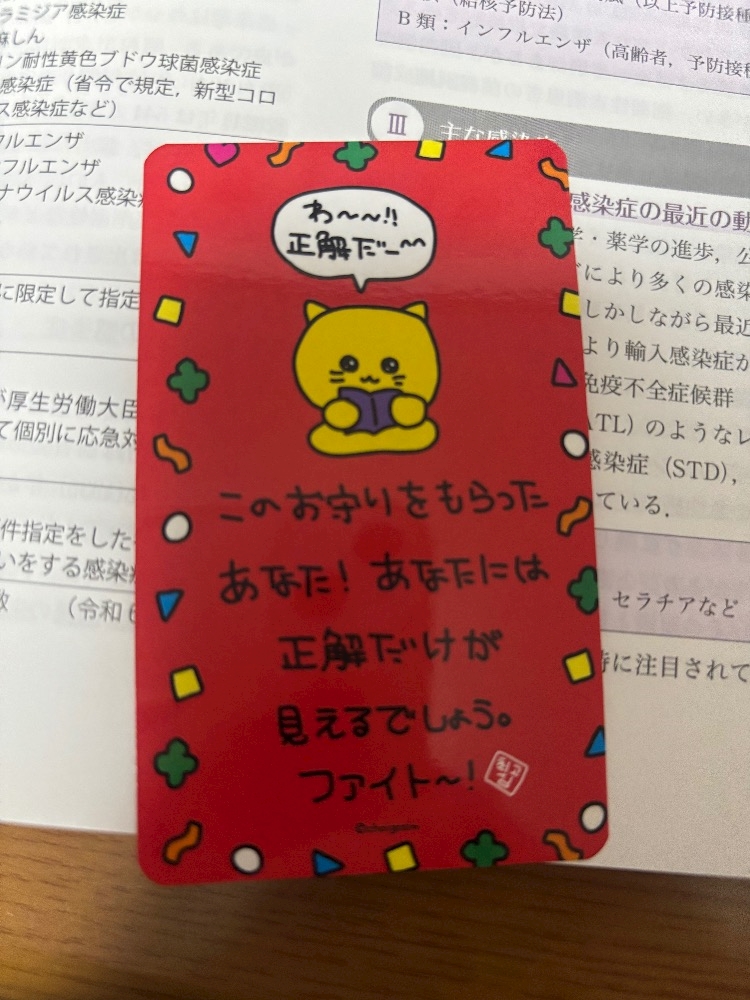 ラミジア感染症
麻しん
ン耐性黄色ブドウ球菌感染症
感染症（省令で規定，新型コロ
ス感染症など）
フルエンザ
ナウイルス感染
に限定して指定
が厚生労働大臣
て個別に応急対
件指定をした
いをする感染
（令和6
（結核予防法）
（以上予防接種
B類：インフルエンザ（高齢者，予防接種
Ⅲ 主な感染
感染症の最近の動
学・薬学の進歩，公
により多くの感染
しかしながら最近
より輸入感染症が
免疫不全症候群
ATL）のようなレ
感染症（STD），
ている．
セラチアなど
特に注目されて
わ〜〜!!
正解だー〜
このお守りをもらった
あなた！あなたには
正解だけが
見えるでしょう。
ファイト〜！